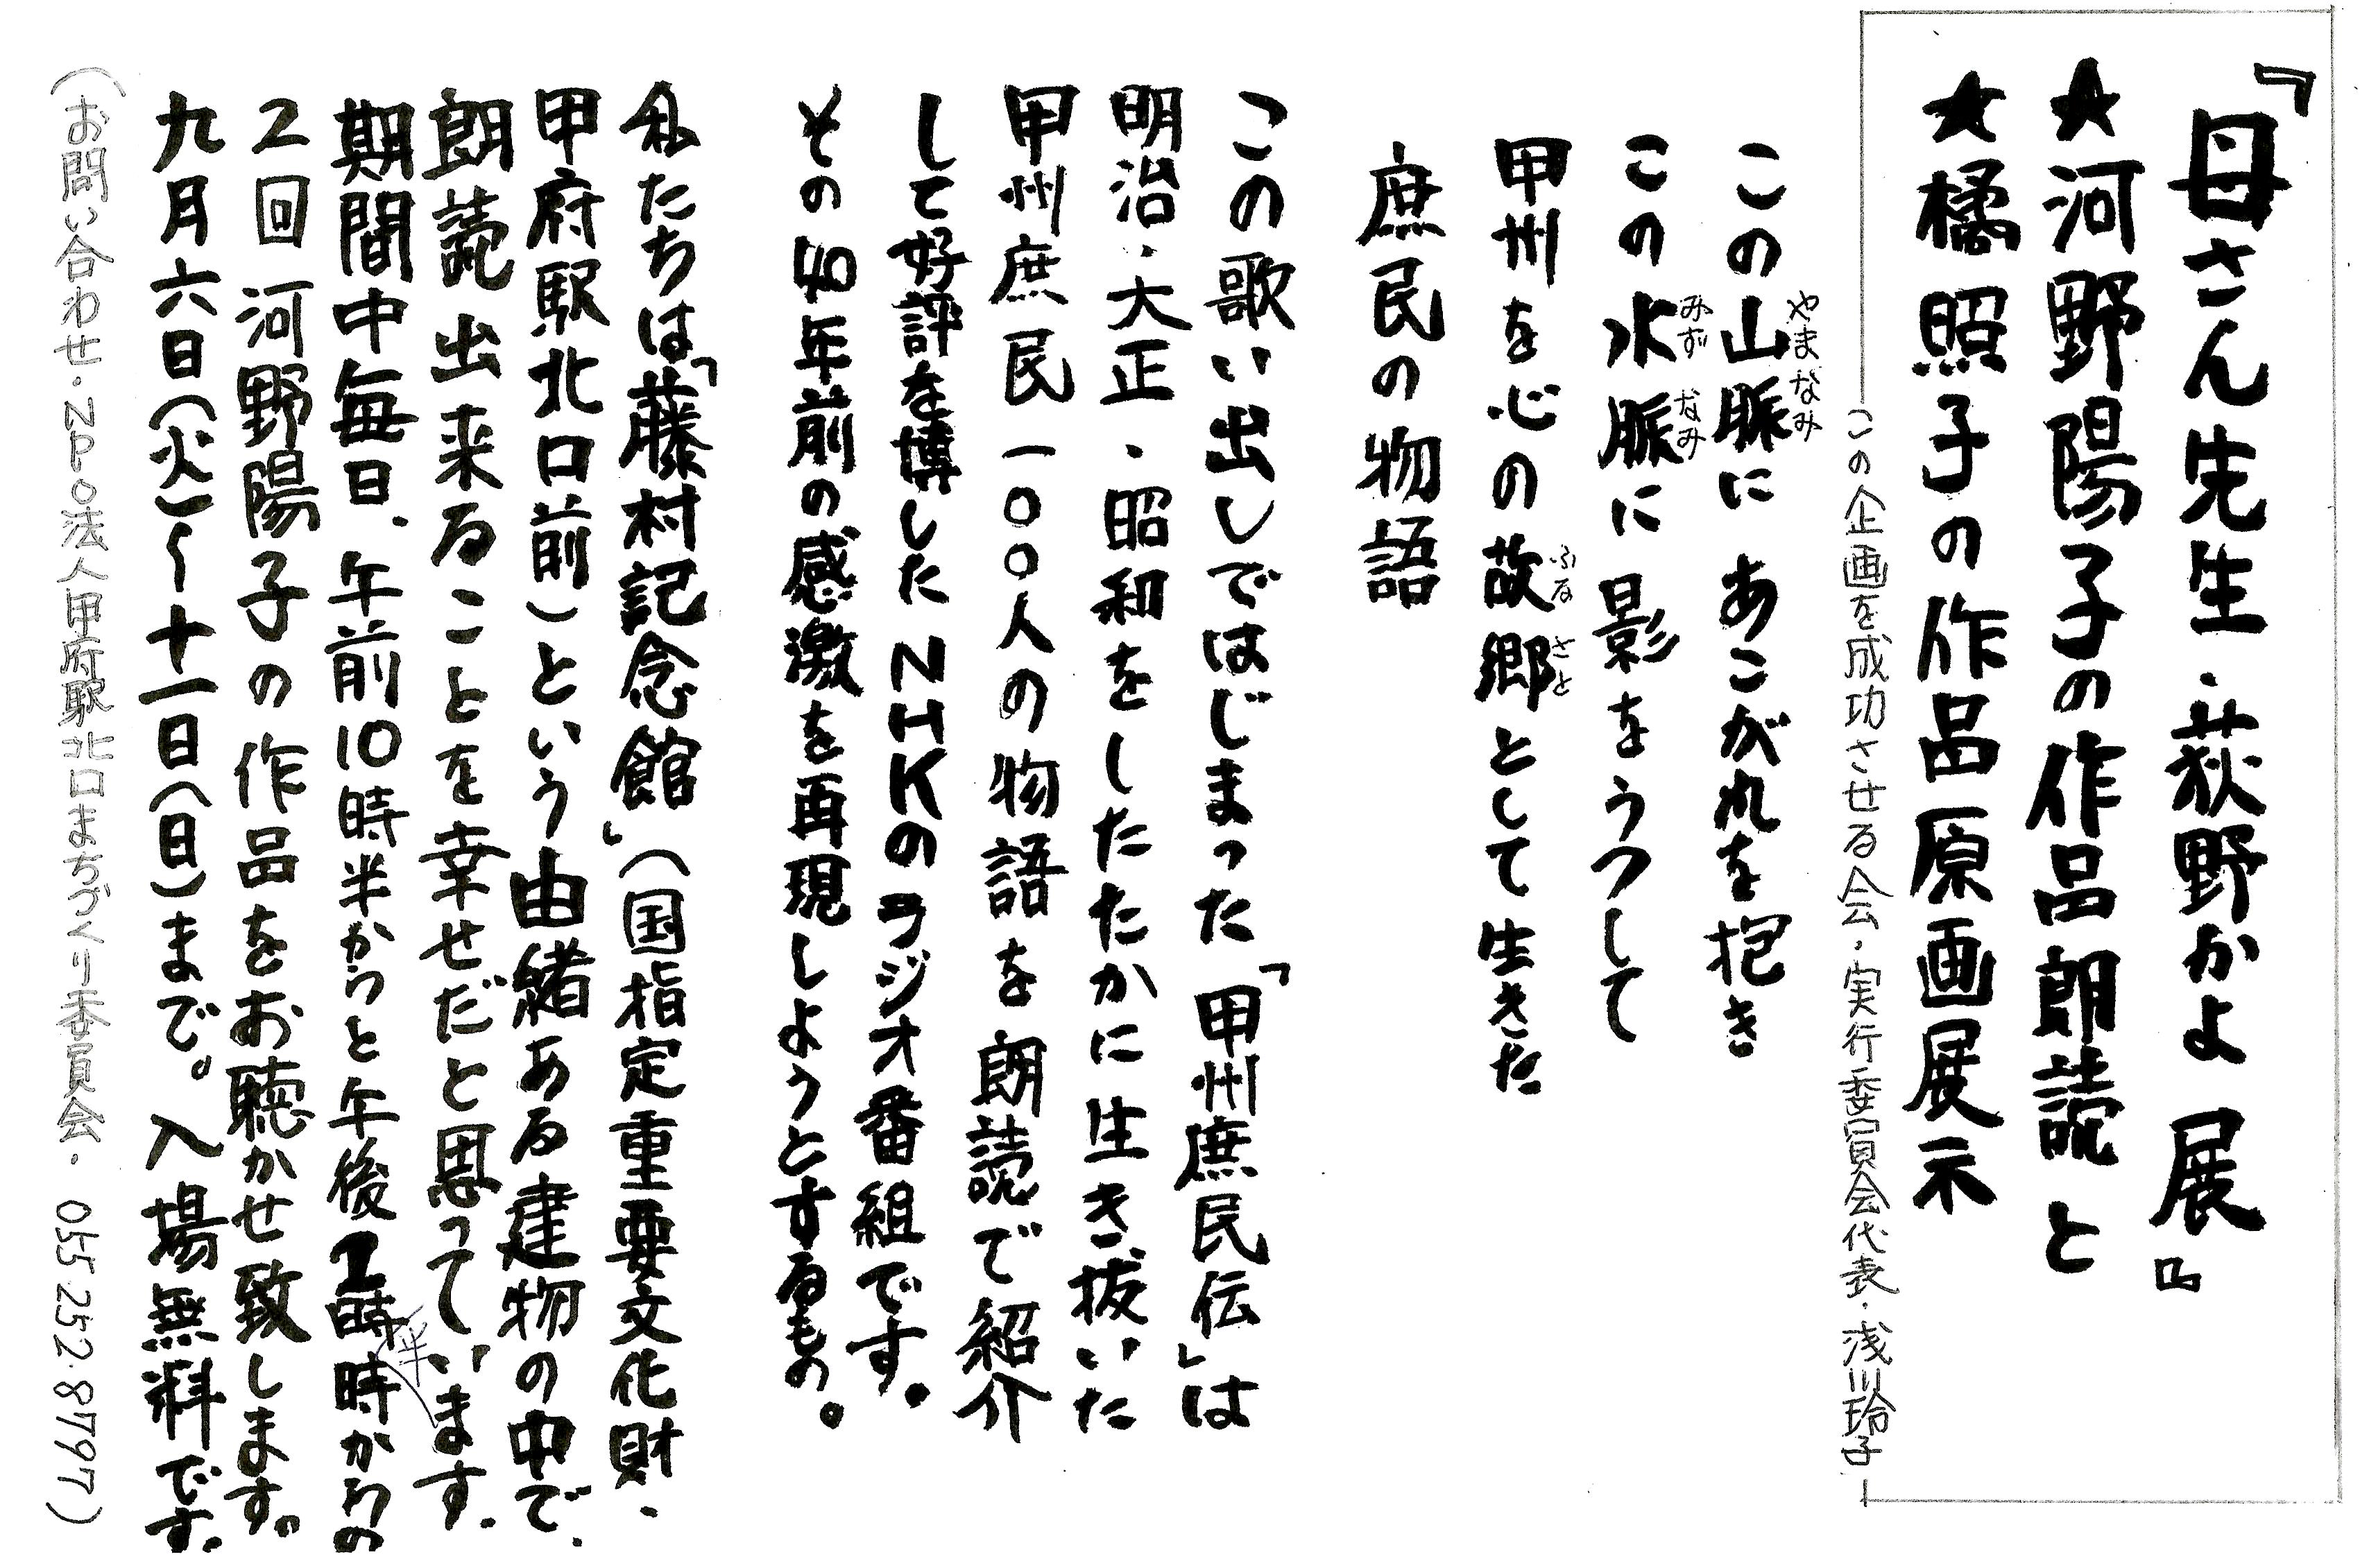 『母さん先生・荻野かよ 展』
★河野陽子の作品朗読と
★橘照子の作品原画展示
この企画を成功させる会・実行委員会代表・浅川玲子
この山脈に あこがれを抱き
やまなみ
この水脈に 影をうつして
みずなみ
甲州を心の故郷として生きた
ふるさと
庶民の物語
この歌い出しではじまった「甲州庶民伝」は
明治・大正、昭和をしたたかに生き抜いた
甲州庶民一〇〇人の物語を朗読で紹介
して好評を博したNHKのラジオ番組です。
その40年前の感激を再現しようとするもの。
私たちは「藤村記念館」(国指定重要文化財、
甲府駅北口前)という由緒ある建物の中で、
朗読出来ることを幸せだと思っています。
期間中毎日、午前10時半からと午後1時半時からの
2回河野陽子の作品をお聴かせ致します。
九月六日(火)〜十一日(日)まで。入場無料です。
(お問い合わせ・NPO法人甲府駅北口まちづくり委員会・055 252・8797)